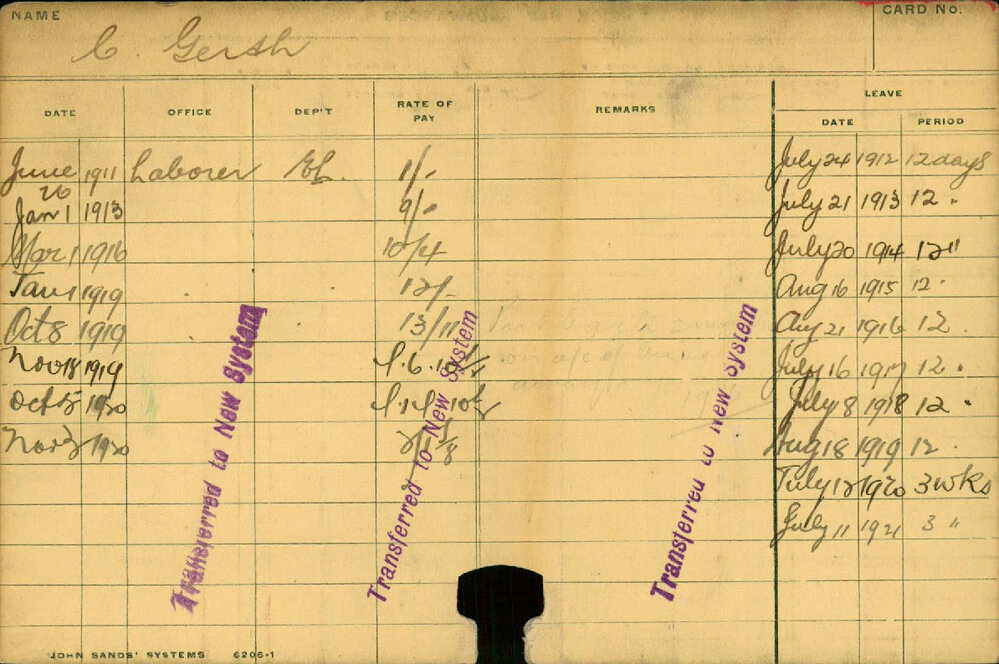 NAME
CARD No.
C. Gersh
DATE OFFICE DEP'T RATE OF PAY REMARKS LEAVE
DATE PERIOD
June 26 1911 Laborer EL. 1/- July 24 1912 12 days
Jan 1 1913 9/- July 21 1913 12 "
Mar 1 1916 10/4 July 20 1914 12 "
Jan 1 1919 12/- Aug 16 1915 12 "
Oct 8 1919 13/11 Aug 21 1916 12
Nov 18 1919 July 16 1917 12 "
Oct 5 1920 July 8 1918 12 "
Nov 1920 Aug 18 1919 12 "
July 12 1920 3 wks
July 11 1921 3 "
Transferred to New System
Transferred to New System
Transferred to New System
JOHN SANDS' SYSTEMS 6206-1